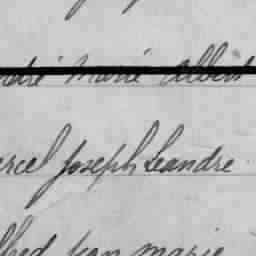 ndré Marie Albert
arcel Joseph Leandre
lfred Jean Marie